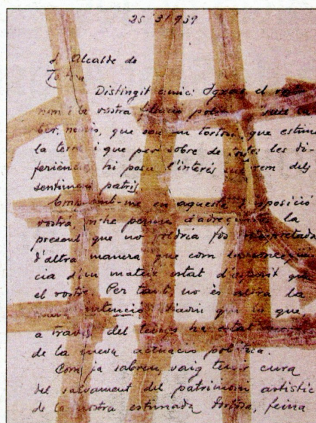 25 3 1939
Sr Alcalde de
Distingit amic: Ignor el vostre
nom i la vostra filiació política
però, que sou un tortosí que estima
la terra i que per sobre de totes les di-
ferències hi posa l'interés suprem del
sentiment patri.
en aquesta disposició
vostra, m'he permés d'adreçar-vos la
present que no podria fos interpretada
d'altra manera que com
cia d'un mateix estat d'esperit que
el vostre. Per tant, no és altra la
meva intenció que lo que
a través del temps ha estat
de la meva actuació política.
Com ja sabreu, vaig tenir cura
del salvament del patrimoni artístic
de la nostra estimada Tortosa, feina